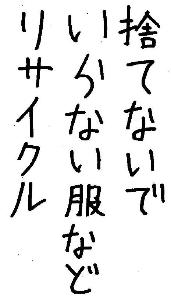 捨てないで
いかない服など
リサイクル